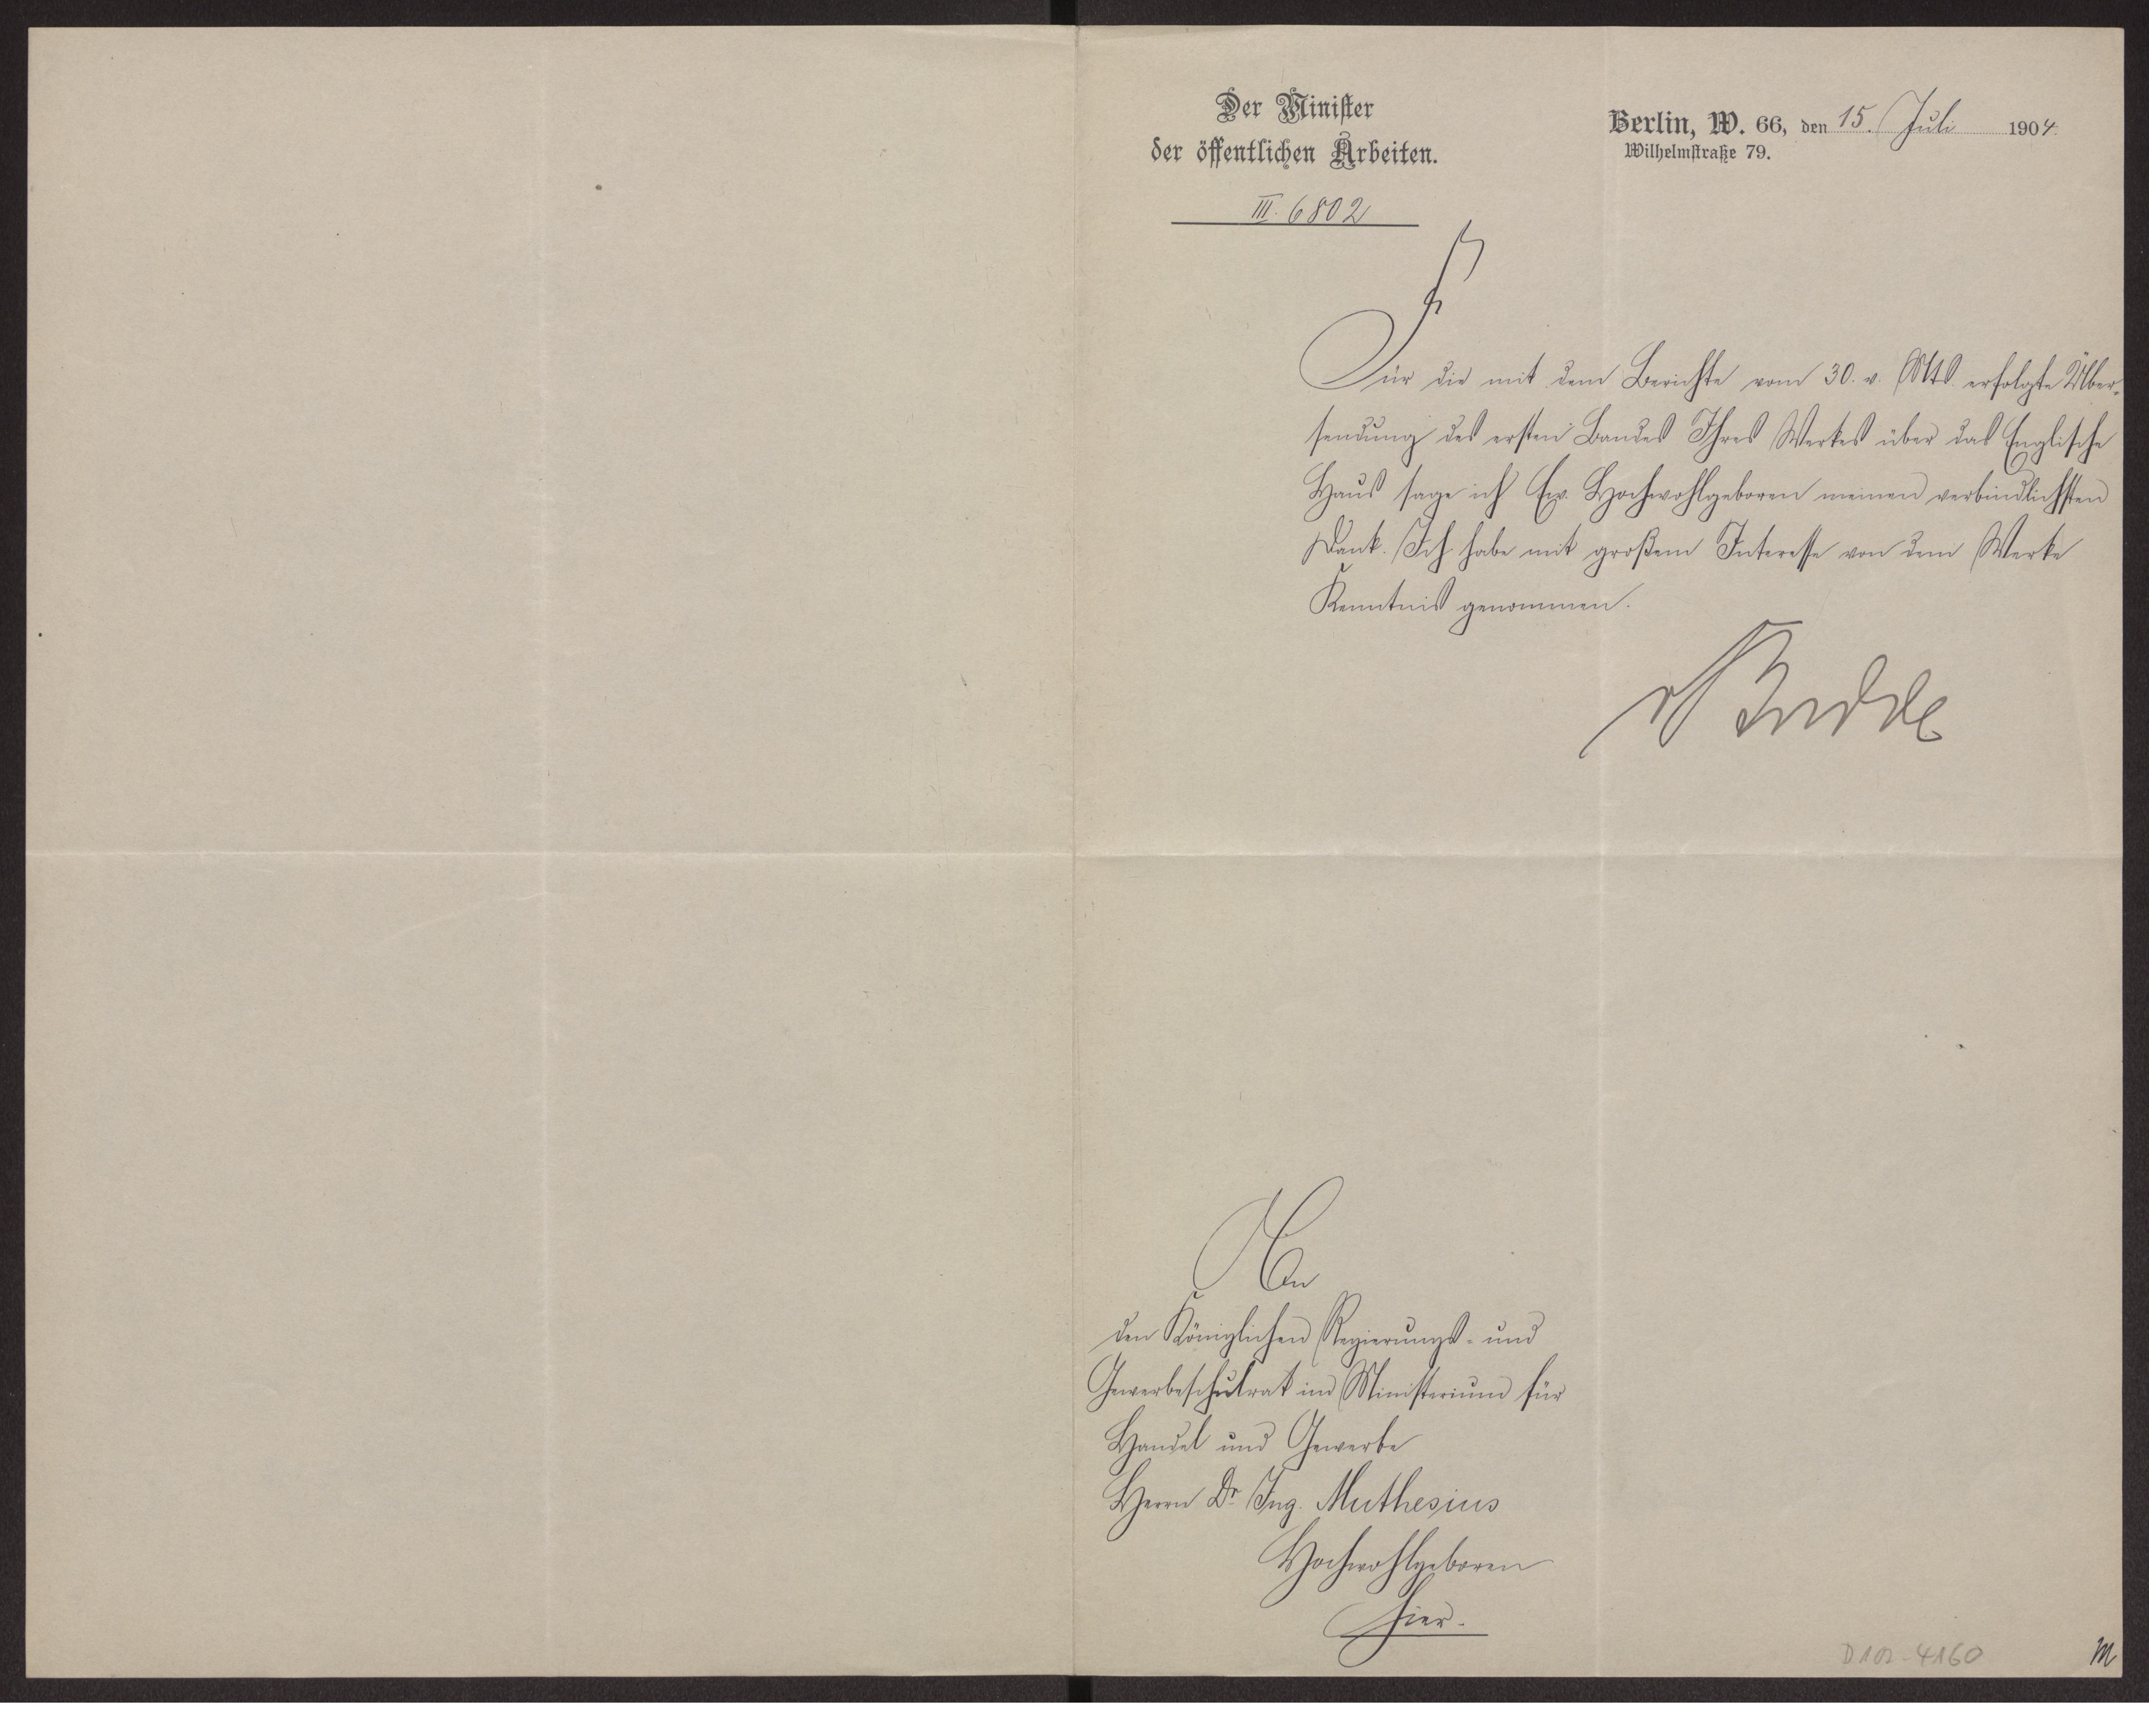 Der Minister
der öffentlichen Arbeiten.
III. 6802
Berlin, W. 66, den 15. Juli 1904.
Wilhelmstraße 79.
Für die mit dem Berichte vom 30. v. Mts. erfolgte Über-
sendung des ersten Bandes Ihres Werkes über das Englische
Haus sage ich Ew. Hochwohlgeboren meinen verbindlichsten
Dank. Ich habe mit großem Interesse von dem Werke
Kenntnis genommen.
Budde
An
den Königlichen Regierungs- und
Gewerbeschulrat im Ministerium für
Handel und Gewerbe
Herrn Dr. Ing. Muthesius
Hochwohlgeboren
hier.
D102-4160
M